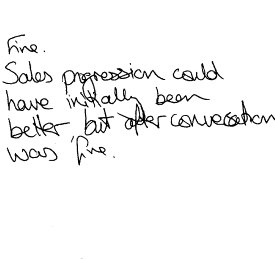 Fine.
Sales progression could
have initially been
better but after conversation
was fine.